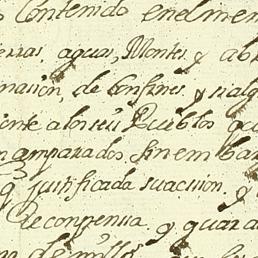 Contenido enelmen
erras, aguas, Montes, y ab
masion, de Confines, y
iente alos seis Pueblos qu
n amparados, sin embar
q justificada suaccion, y
Recompensa, y guar